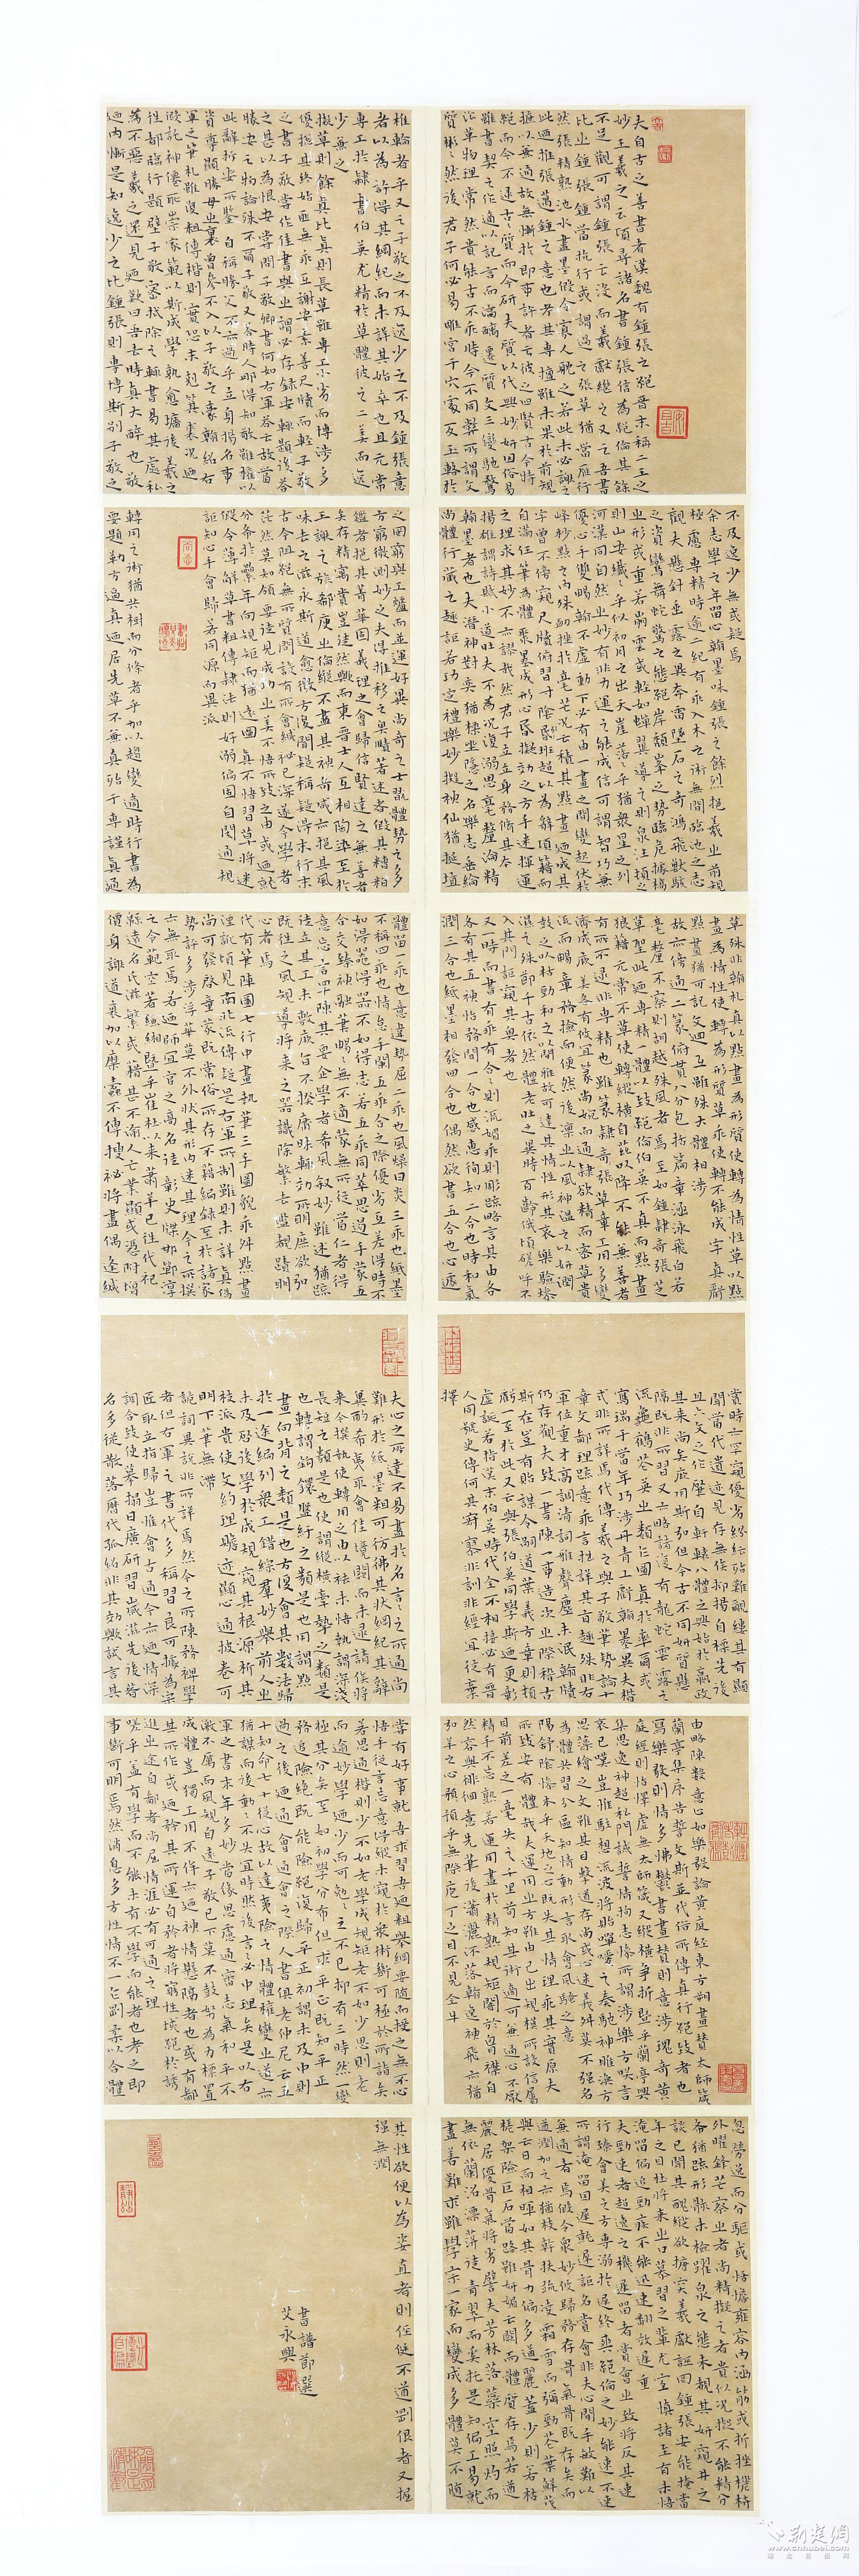 夫自古之善書者漢魏有鍾張之絕晉末稱二王之
妙王羲之云頃尋諸名書鍾張信為絕倫其餘
不足觀可謂鍾張云沒而羲獻繼之又云吾書
比之鍾張鍾當抗行或謂過之張草猶當雁行
然張精熟池水盡墨假令寡人耽之若此未必謝之
此迺推張邁鍾之意也考其專擅雖未果於前規
摭以兼通故無慚於即事評者云彼之四賢古今特
絕而今不逮古古質而今妍夫質以代興妍因俗易
雖書契之作適以記言而淳醨一遷質文三變馳騖
沿革物理常然貴能古不乖時今不同弊所謂文
質彬彬然後君子何必易雕宮於穴處反玉輅於
椎輪者乎又云子敬之不及逸少逸少之不及鍾張意
者以為評得其綱紀而未詳其始卒也且元常
專工於隸書伯英尤精於草體彼之二美而逸
少兼之
擬草則餘真比真則長草雖專工小劣而博涉多
優揔其終始匪無乖互謝安素善尺牘而輕子敬
之書子敬嘗作佳書與之謂必存錄安輒題後答
之甚以為恨安嘗問子敬卿書何如右軍答云故當
勝安云物論殊不爾子敬又答時人那得知敬雖權以
此辭折安所鑒自稱勝父不亦過乎立身揚名事
資尊顯勝母之里曾參不入以子敬之豪翰紹右
軍之筆札雖復粗傳楷則實恐未克箕裘況迺
假託神僊恥崇家範以斯成學孰愈面墉後羲之
往都臨行題壁子敬密拭除之輒書易其處私
為不惡羲之還見迺歎曰吾去時真大醉也敬
迺內慚是知逸少之比鍾張則專博斯別子敬之
不及逸少無或疑焉
余志學之年留心翰墨味鍾張之餘烈挹羲之前規
極慮專精時逾二紀有乖入木之術無間臨池之志
觀夫懸針垂露之異奔雷墜石之奇鴻飛獸駭
之資鸞舞蛇驚之態絕岸頹峯之勢臨危據槁
之形或重若崩雲或輕如蟬翼導之則泉注頓之
則山安纖纖乎似初月之出天崖落落乎猶衆星之列
河漢同自然之妙有非力運之能成信可謂智巧兼
優心手雙暢翰不虛動下必有由一畫之間變起伏於
峰杪一點之內殊衄挫於毫芒況云積其點畫迺成其
字曾不傍窺尺牘俯習寸陰引班超以為辭援項籍而
自滿任筆為體聚墨成形心昏擬効之方手迷揮運
之理求其妍妙不亦謬哉然君子立身務脩其本
揚雄謂詩賦小道壯夫不為況復溺思毫釐淪精
翰墨者也夫潛神對奕猶標坐隱之名樂志垂綸
尚體行藏之趣詎若功定禮樂妙擬神仙猶埏埴
之罔窮與工爐而並運好異尚奇之士翫體勢之多
方窮微測妙之夫得推移之奧賾著述者假其糟粕
藻鑒者挹其菁華固義理之會歸信賢達之兼善者
矣存精寓賞豈徒然歟而東晉士人互相陶染至於
王謝之族郗庾之倫縱不盡其神奇咸亦挹其風
味去之滋永斯道愈微方復聞疑稱疑得末行末
古今阻絕無所質問設有所會緘秘已深遂令學者
茫然莫知領要徒見成功之美不悟所致之由或迺就
分布於累年向規矩而猶遠圖真不悟習草將迷
假令薄解草書粗傳隸法則好溺偏固自閡通規
詎知心手會歸若同源而異派
轉用之術猶共樹而分條者乎加以趨變適時行書為
要題勒方畐真迺居先草不兼真殆於專謹真不通
草殊非翰札真以點畫為形質使轉為情性草以點
畫為情性使轉為形質草乖使轉不能成字真虧
點畫猶可記文迴互雖殊大體相涉
故亦傍通二篆俯貫八分包括篇章涵泳飛白若
毫釐不察則胡越殊風者焉至如鍾繇隸奇張芝
草聖此迺專精一體以致絕倫伯英不真而點畫
狼籍元常不草使轉縱橫自茲以降不能兼善者
有所不逮非專精也雖篆隸草章工用多變
濟成厥美各有攸宜篆尚婉而通隸欲精而密草貴
流而暢章務檢而便然後凜之以風神溫之以妍潤
鼓之以枯勁和之以閑雅故可達其情性形其哀樂驗燥
濕之殊節千古依然體老壯之異時百齡俄頃嗟呼不
入其門詎窺其奧者也
又一時而書有乖有合合則流媚乖則彫疏略言其由各
有其五神怡務閑一合也感惠徇知二合也時和氣
潤三合也紙墨相發四合也偶然欲書五合也心遽
體留一乖也意違勢屈二乖也風燥日炎三乖也紙墨
不稱四乖也情怠手闌五乖也乖合之際優劣互差得時不
如得器得器不如得志若五乖同萃思遏手蒙五
合交臻神融筆暢暢無不適蒙無所從當仁者得
意忘言罕陳其要企學者希風敘妙雖述猶疏
徒立其工未敷厥旨不揆庸昧輒効所明庶欲弘
既往之風規導將來之器識除繁去濫覩蹟明
心者焉
代有筆陣圖七行中畫執筆三手圖貌乖舛點畫
湮訛頃見南北流傳疑是右軍所制雖則未詳真偽
尚可發啟童蒙既常俗所存不藉編錄至於諸家
勢評多涉浮華莫不外狀其形內迷其理今之所撰
亦無取焉若迺師宜官之高名徒彰史牒邯鄲淳
之令範空著縑緗暨乎崔杜以來蕭羊已往代祀
緜遠名氏滋繁或藉甚不渝人亡業顯或憑附增
價身謝道衰加以糜蠹不傳搜祕將盡偶逢緘
賞時亦罕窺優劣紛紜殆難覼縷其有顯
聞當代遺迹見存無俟抑揚自標先後
且六文之作肇自軒轅八體之興始於嬴政
其來尚矣厥用斯弘但今古不同妍質懸
隔既非所習又亦略諸復有龍蛇雲露之
流龜鶴花英之類乍圖真於率爾或
寫瑞於當年巧涉丹青工虧翰墨異夫楷
式非所詳焉代傳羲之與子敬筆勢論十
章文鄙理疏意乖言拙詳其旨趣殊非右
軍位重才高調清詞雅聲塵未泯翰牘
仍存觀夫致一書陳一事造次之際稽古
斯在豈有貽謀令嗣道葉義方章則頓
虧一至於此又云與張伯英同學斯迺更彰
虛誕若指漢末伯英時代全不相接必有晉
人同號史傳何其寂寥非訓非經宜從棄
擇
夫心之所達不易盡於名言言之所通尚
難形於紙墨粗可彷彿其狀綱紀其辭
冀酌希夷取會佳境闕而未逮請俟將
來今撰執使轉用之由以祛未悟執謂深淺
長短之類是也使謂縱橫牽掣之類是
也轉謂鈎鐶盤紆之類是也用謂點
畫向背之類是也方復會其數法歸
於一途編列衆工錯綜羣妙舉前賢之
未及啟後學於成規窺其根源析其
枝派貴使文約理贍迹顯心通披卷可
明下筆無滯
詭詞異說非所詳焉然今之所陳務裨學
者但右軍之書代多稱習良可據為宗
匠取立指歸豈惟會古通今亦迺情深
調合致使摹搨日廣研習歲滋先後著
名多從散落歷代孤紹非其効歟試言其
由略陳數意止如樂毅論黃庭經東方朔畫贊太師箴
蘭亭集序告誓文斯並代俗所傳真行絕致者也
寫樂毅則情多怫鬱書畫贊則意涉瑰奇黃
庭經則怡懌虛無太師箴又縱橫爭折暨乎蘭亭興
集思逸神超私門誡誓情拘志慘所謂涉樂方笑言
哀已嘆豈惟駐想流波將貽嘽噯之奏馳神睢渙方
思藻繪之文雖其目擊道存尚或心迷義舛莫不強名
為體共習分區豈知情動形言取會風騷之意
陽舒陰慘本乎天地之心既失其情理乖其實原夫
所致安有體哉夫運用之方雖由己出規模所設信屬
目前差之一毫失之千里苟知其術適可兼通心不厭
精手不忘熟若運用盡於精熟規矩闇於胷襟自
然容與徘徊意先筆後瀟灑流落翰逸神飛亦猶
弘羊之心預乎無際庖丁之目不見全牛
嘗有好事就吾求習吾迺粗舉綱要隨而授之無不心
悟手從言忘意得縱未窺於衆術斷可極於所詣矣
若思通楷則少不如老學成規矩老不如少思則老
而逾妙學迺少而可勉勉之不已抑有三時時然一變
極其分矣至如初學分布但求平正既知平正
務追險絕既能險絕復歸平正初謂未及中則
過之後迺通會通會之際人書俱老仲尼云五
十知命七十從心故以達夷險之情體權變之道亦
猶謀而後動動不失宜時然後言言必中理矣是以右
軍之書末年多妙當緣思慮通審志氣和平不
激不厲而風規自遠子敬已下莫不鼓努為力標置
成體豈獨工用不侔亦迺神情懸隔者也或有鄙
其所作或迺矜其所運自矜者將窮性域絕於誘
進之途自鄙者尚屈情涯必有可通之理
嗟乎蓋有學而不能未有不學而能者也考之即
事斷可明焉然消息多方性情不一乍剛柔以合體
忽勞逸而分驅或恬憺雍容內涵筋骨或折挫槎枿
外曜鋒芒察之者尚精擬之者貴似況擬不能似察不能精分
布猶疏形骸未檢躍泉之態未覩其妍窺井之
談已聞其醜縱欲搪突羲獻誣罔鍾張安能掩當
年之目杜將來之口慕習之輩尤宜慎諸至有未悟
淹留偏追勁疾不能迅速翻效遲重
夫勁速者超逸之機遲留者賞會之致將反其速
行臻會美之方專溺於遲終爽絕倫之妙能速不速
所謂淹留因遲就遲詎名賞會非夫心閑手敏難以
兼通者焉假令衆妙攸歸務存骨氣骨既存矣而
遒潤加之亦猶枝幹扶疏凌霜雪而彌勁花葉鮮茂
與雲日而相暉如其骨力偏多遒麗蓋少則若枯
槎架險巨石當路雖妍媚云闕而體質存焉若遒
麗居優骨氣將劣譬夫芳林落蕊空照灼而
無依蘭沼漂蓱徒青翠而奚托是知偏工易就
盡善難求雖學宗一家而變成多體莫不隨
其性欲便以為姿質直者則俓侹不遒剛佷者又掘
強無潤
書譜節選
艾永興
荆楚網
www.cnhubei.com